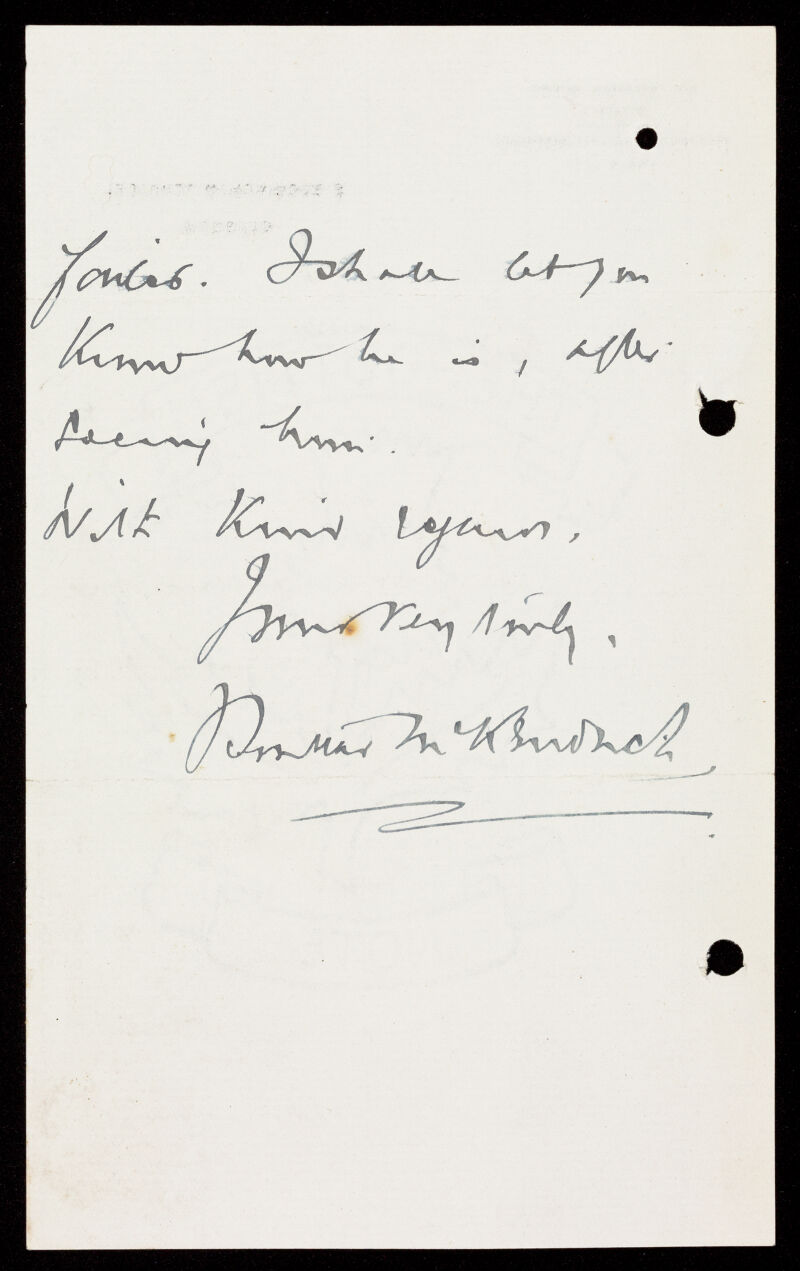 I shall let you
Know how he is, after
seeing him.
With Kind regards,
Yours very truly,
McKendrick